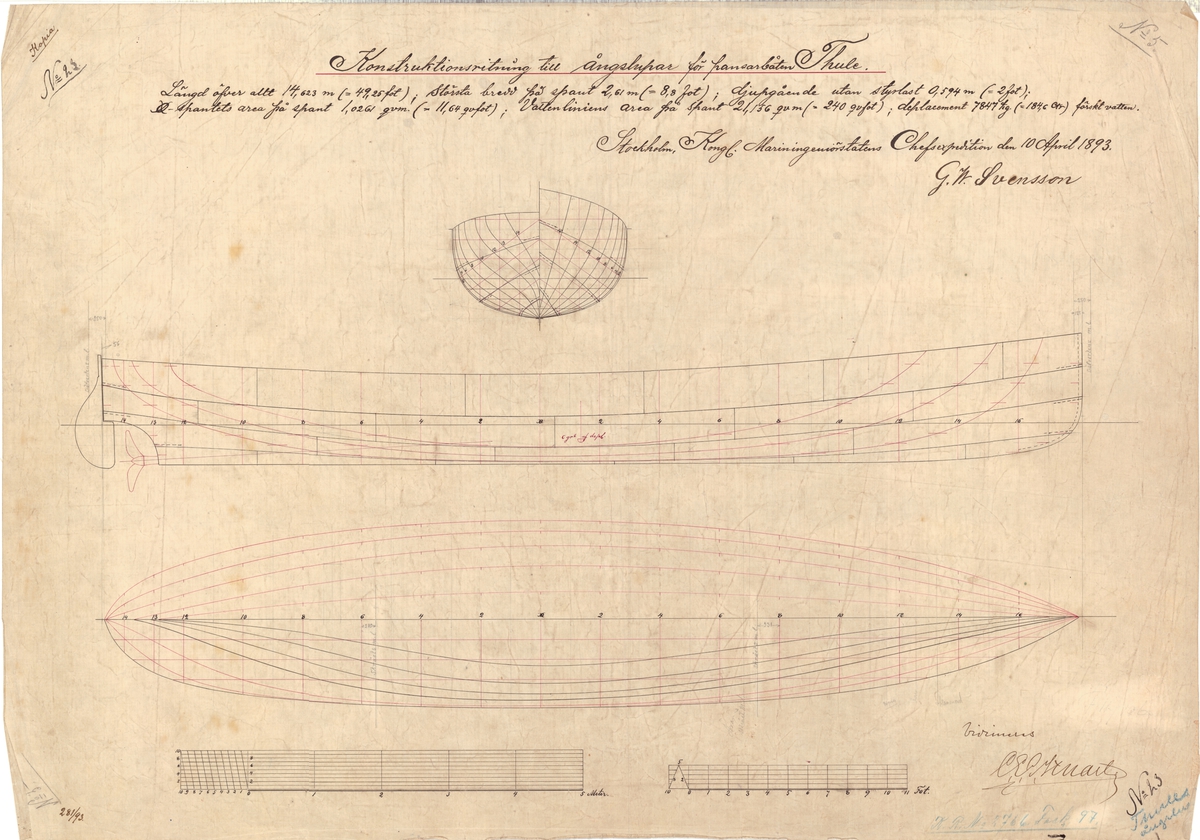 Kopia
No 23
No 5
Konstruktionsritning till ångslupar för pansarbåten Thule.
Längd öfver allt 14,623 m (= 49,25 fot); Största bredd på spant 2,61 m (= 8,8 fot); djupgående utan styrlast 0,594 m (= 2 fot);
spantets area på spant 1,0261 qvm. (= 11,64 qvfot); Vattenliniens area på spant 21,156 qvm (= 240 qvfot); deplacement 7847 kg (= 184,6 Ctr) färskt vatten.
Stockholm, Kongl. Mariningeniörstatens Chefsexpedition den 10 April 1893.
G. W. Svensson
14 13 12 10 8 6 4 2 2 4 6 8 10 12 14 16
14 13 12 10 8 6 4 2 2 4 6 8 10 12 14 16
0 1 2 3 4 5 Meter.
10 0 1 2 3 4 5 6 7 8 9 10 11 Fot.
Vidimeras
No 23
Thules
281/93